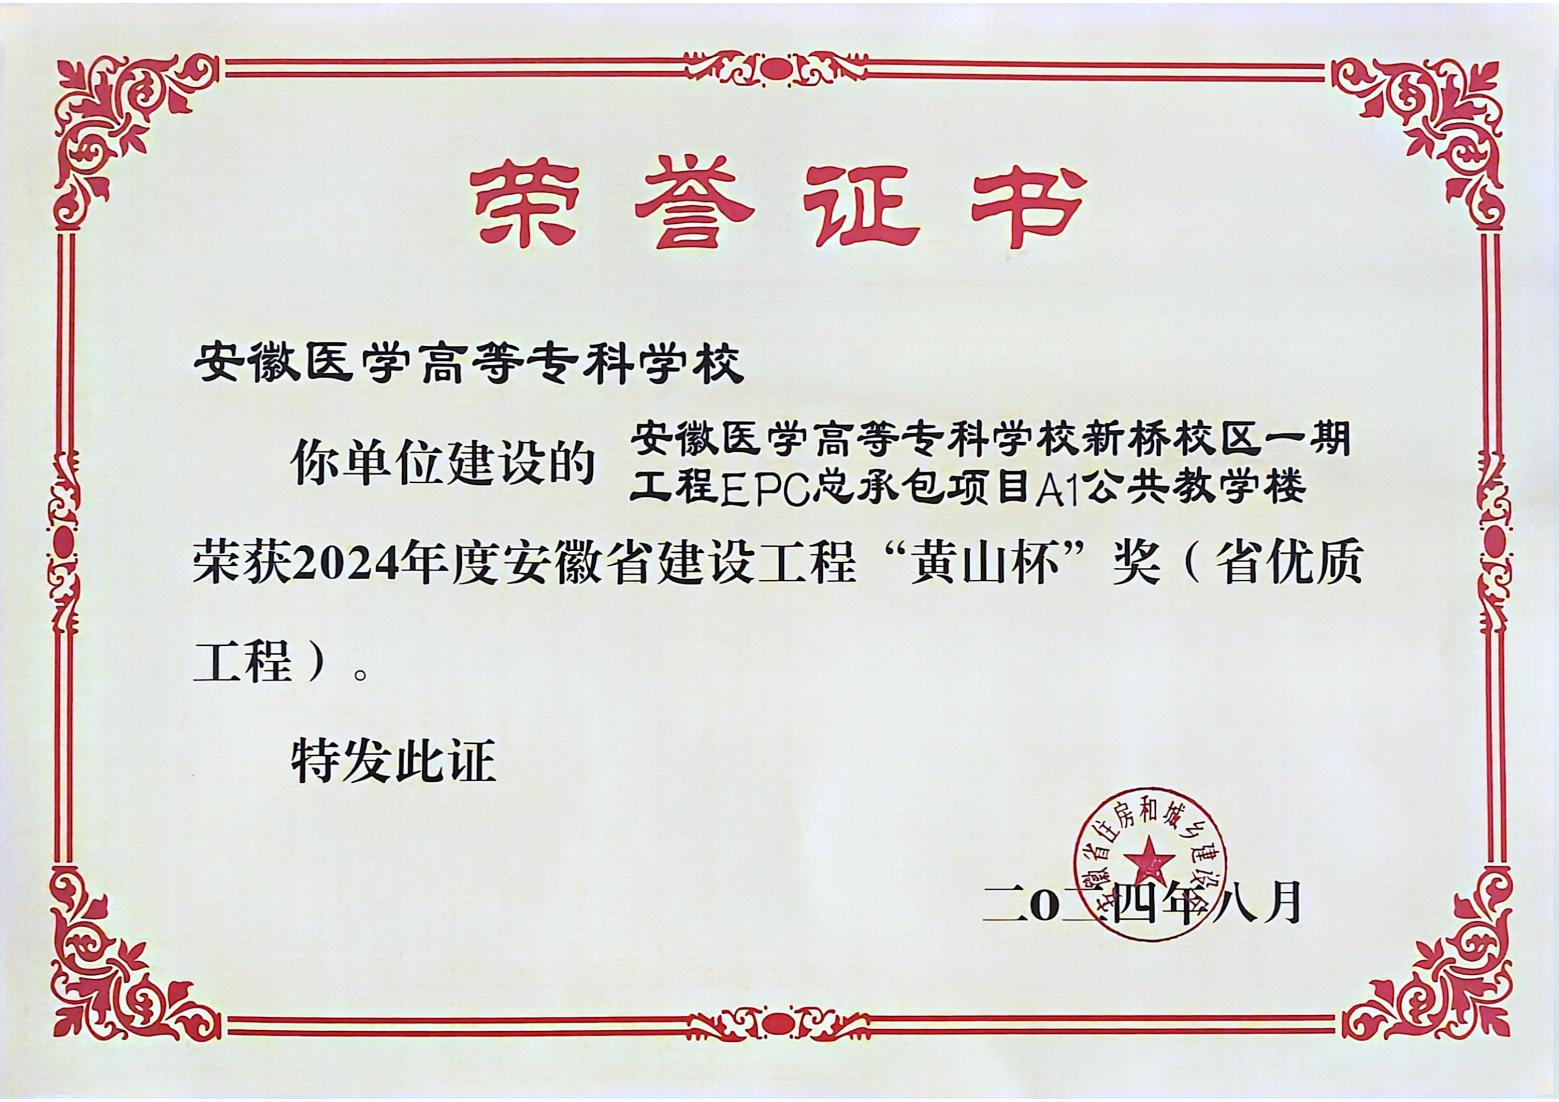 荣誉证书
安徽医学高等专科学校
你单位建设的 安徽医学高等专科学校新桥校区一期
工程EPC总承包项目A1公共教学楼
荣获2024年度安徽省建设工程“黄山杯”奖（省优质
工程）。
特发此证
安徽省住房和城乡建设厅
二o二四年八月